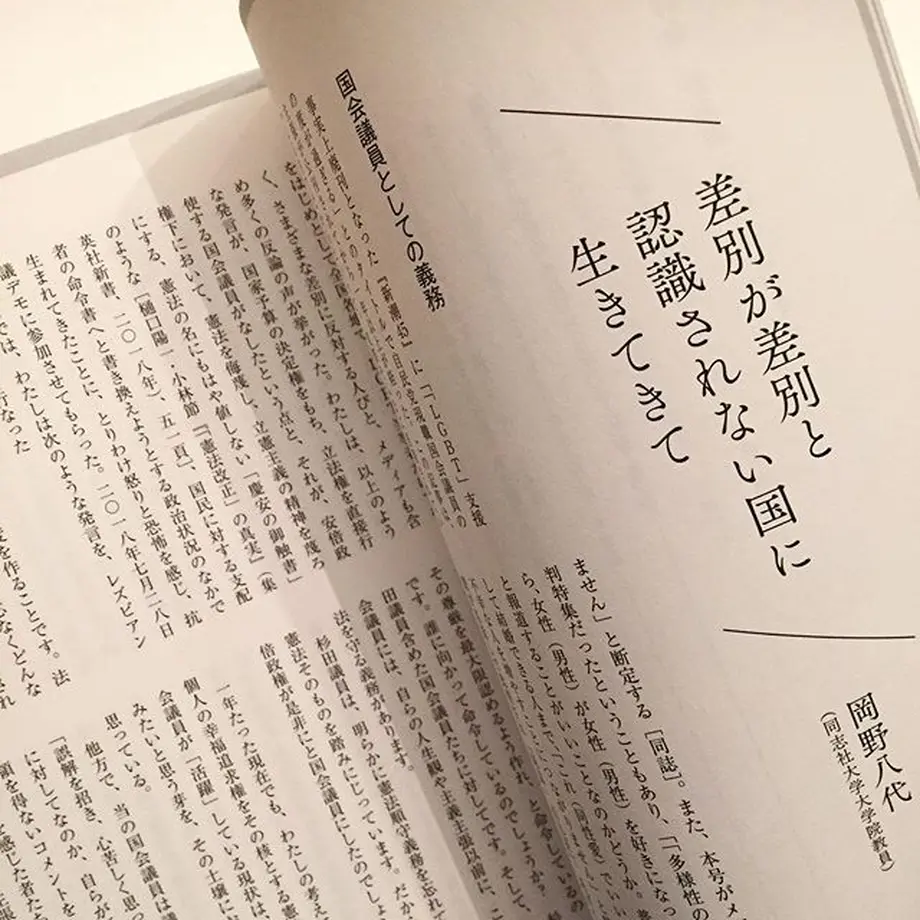 差別が差別と
認識されない国に
生きてきて
岡野八代
（同志社大学大学院教員）
国会議員としての義務
事実上廃刊となった『新潮45』に「「LGBT」支援
の
ません」と断定する［同誌］。また、本号がメ
判特集だったということもあり、「「多様性の
ら、女性（男性）が女性（男性）を好きになっ
と報道することがいいことなのかどうか。
をはじめとして全国各地で
く、さまざまな差別に反対する人びと、メディアも含
め多くの反論の声が挙がった。わたしは、以上のよう
な発言が、国家予算の決定権をもち、立法権を直接行
使する国会議員がなしたという点と、それが、安倍政
権下において、憲法を侮蔑し、立憲主義の精神を蔑ろ
にする、憲法の名にもはや値しない「慶安の御触書」
のような［樋口陽一・小林節『「憲法改正」の真実』（集
英社新書、二〇一八年）、五二頁］、国民に対する支配
者の命令書へと書き換えようとする政治状況のなかで
生まれてきたことに、とりわけ怒りと恐怖を感じ、抗
議デモに参加させてもらった。二〇一八年七月二八日
では、わたしは次のような発言を、レズビアン
行なった
を作ることです。法
なくどんな
その尊厳を最大限認めるよう作れ、と命令しているの
です。誰に向かって命令しているのでしょうか？
田議員含めた国会議員たちに対してです。そして、
会議員には、自らの人生観や主義主張以前に、こ
法を守る義務があります。
杉田議員は、明らかに憲法順守義務を忘れて
憲法そのものを踏みにじっています。だか
倍政権が是非にと国会議員にしたのでしょ
一年たった現在でも、わたしの考え
個人の幸福追求権をその核とする憲
会議員が「活躍」している現状は、
みたいと思う芽を、その土壌に
思っている。
他方で、当の国会議員は
「誤解を招き、心苦しく思っ
に対してなのか、自らが
領を得ないコメントを
を感じた者た